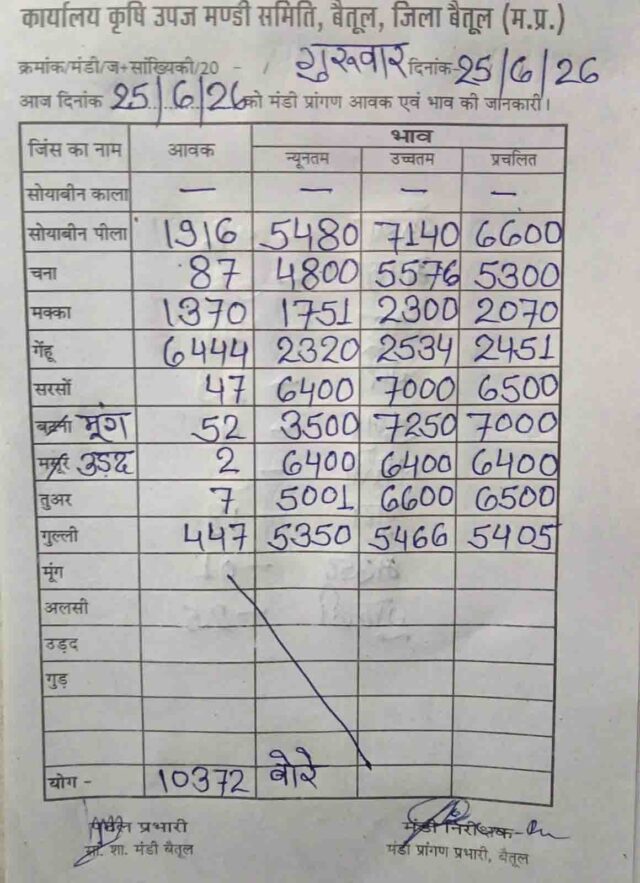 कार्यालय कृषि उपज मण्डी समिति, बैतूल, जिला बैतूल (म.प्र.)
क्रमांक/मंडी/ज+सांख्यिकी/20 - / गुरूवार दिनांक-25/6/26
आज दिनांक 25/6/26 को मंडी प्रांगण आवक एवं भाव की जानकारी।
जिंस का नाम आवक भाव
न्यूनतम उच्चतम प्रचलित
सोयाबीन काला — — — —
सोयाबीन पीला 1916 5480 7140 6600
चना 87 4800 5576 5300
मक्का 1370 1751 2300 2070
गेंहू 6444 2320 2534 2451
सरसों 47 6400 7000 6500
मूंग 52 3500 7250 7000
मसूर उड़द 2 6400 6400 6400
तुअर 7 5001 6600 6500
गुल्ली 447 5350 5466 5405
मूंग
अलसी
उड़द
गुड़
योग - 10372 बोरे
प्रभारी मंडी निरीक्षक
शा. मंडी बैतूल मंडी प्रांगण प्रभारी, बैतूल